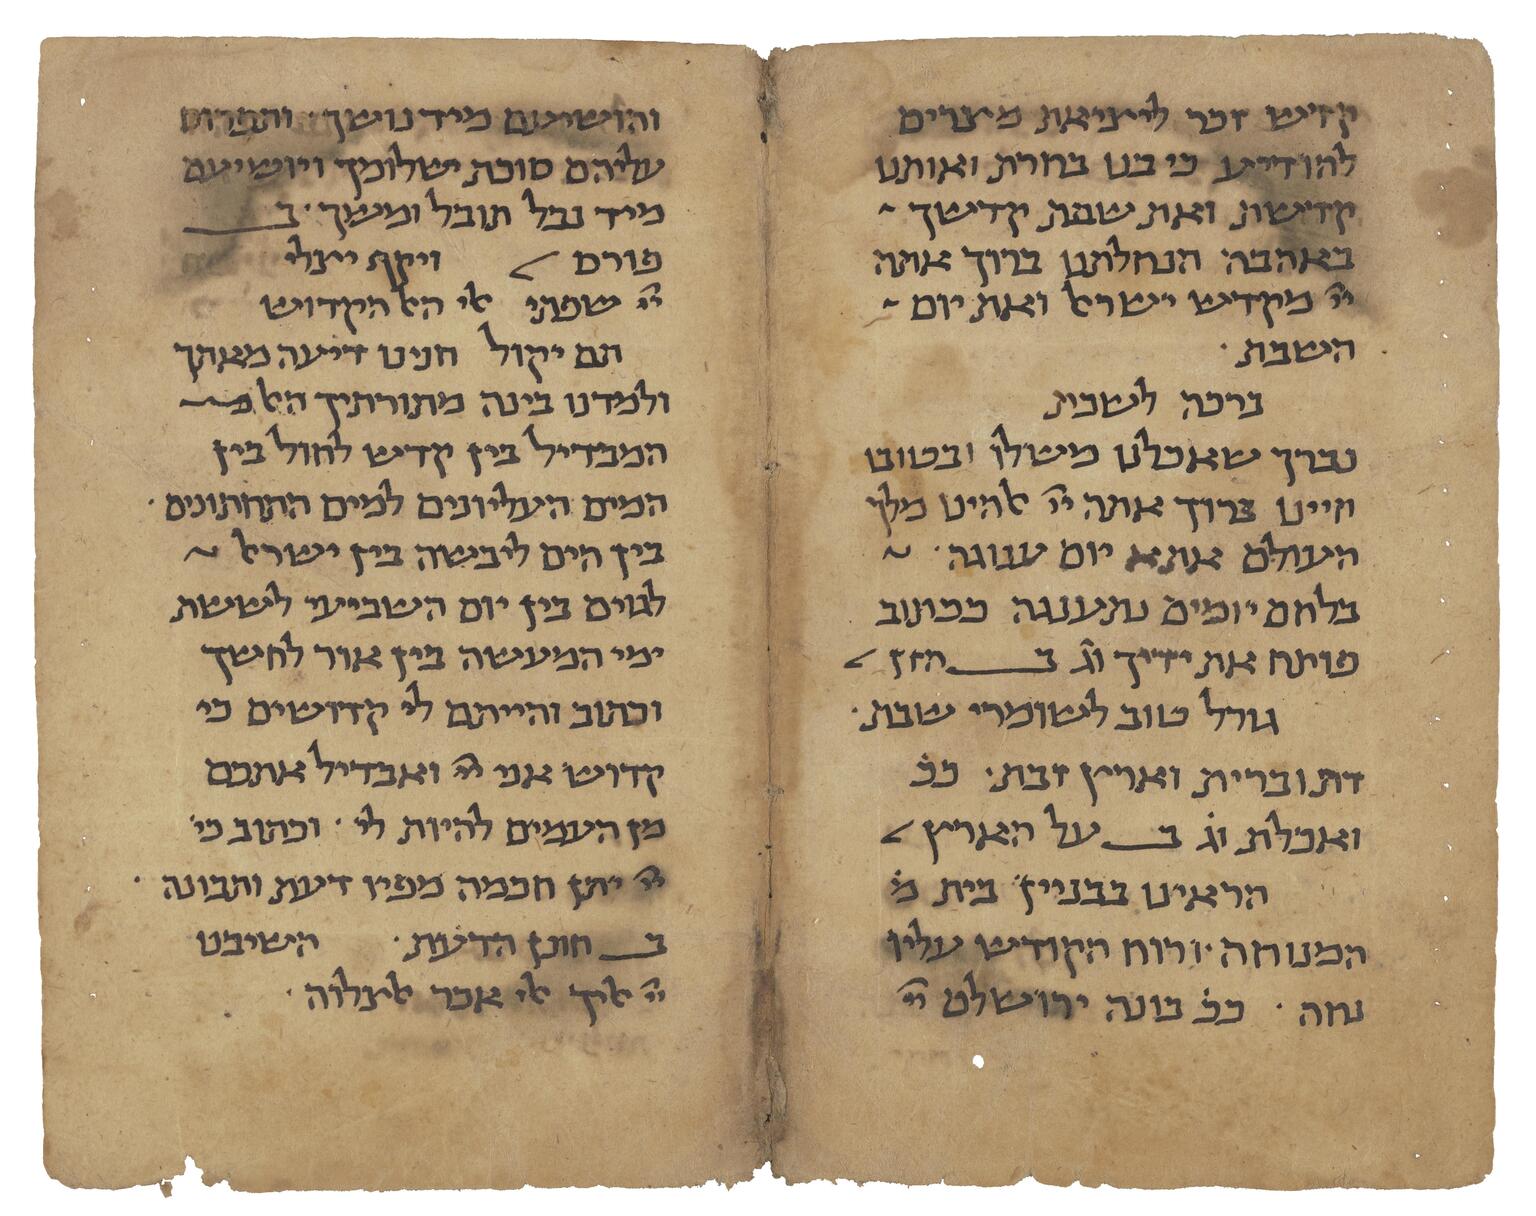 קדיש זכר ליציאת מצרים
להודיע כי בנו בחרת ואותנו
קדישת ואת שבת קדשך
באהבה הנחלתנו ברוך אתה
יי מקדיש ישראל ואת יום
השבת ·
ברכה לשבת
נברך שאכלנו משלו ובטובו
חיינו ברוך אתה יי אהינו מלך
העולם יום ענוגה ·
בלחם יומים נתענגה ככתוב
פותח את ידיך וג ב הזן
גורל טוב לשומרי שבת ·
דת וברית וארץ זבת · ככ
ואכלת וג ב על הארץ
הראינו בבניין בית מ
המנוחה · ורוח הקודש עליו
נחה · ככ בונה ירושלם יי
והושיעם מיד נושך · ותפרוס
עליהם סוכת שלומך ויושיעם
מיד נבל תובל ומשך · ב
פורס ויקף יצלי
יי שפתי אי הא הקדוש
תם יקול חנינו דיעה מאתך
ולמדנו בינה מתורתיך הא
המבדיל בין קדש לחול בין
המים העליונים למים התחתונים ·
בין הים ליבשה בין ישראל
לגוים בין יום השביעי לששת
ימי המעשה בין אור לחשך
וכתוב והייתם לי קדושים כי
קדוש אני יי ואבדיל אתכם
מן העמים להיות לי · וכתוב כי
יי יתן חכמה מפיו דעת ותבונה ·
ב חונן הדעת · השיבנו
יי אליך אי אכר אצלוה ·